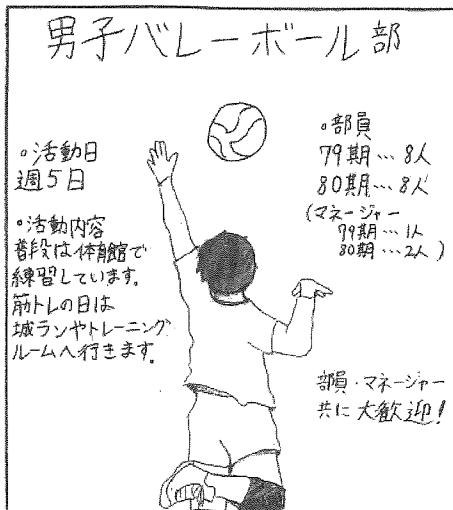 男子バレーボール部
。活動日
週5日
。活動内容
普段は体育館で
練習しています。
筋トレの日は
城ランやトレーニング
ルームへ行きます。
。部員
79期…8人
80期…8人
(マネージャー
79期…1人
80期…2人)
部員・マネージャー
共に大歓迎!